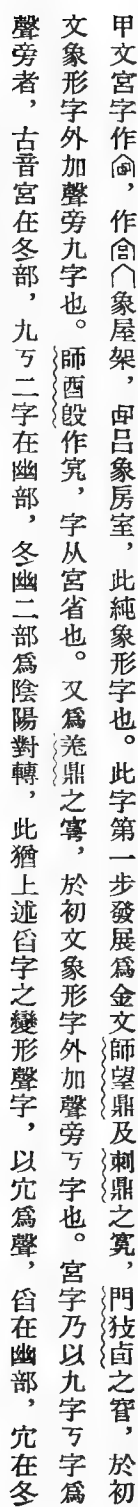 甲文宮字作，作象屋架，吕象房室，此純象形字也。此字第一步發展爲金文師望鼎及刺鼎之䆪，門㧊卣之，於初
文象形字外加聲旁九字也。師酉𣪘作宄，字从宮省也。又爲羌鼎之，於初文象形字外加聲旁丂字也。宮字乃以九字丂字爲
聲旁者，古音宮在冬部，九丂二字在幽部，冬幽二部爲陰陽對轉，此猶上述㕣字之變形聲字，以宂爲聲，㕣在幽部，宂在冬